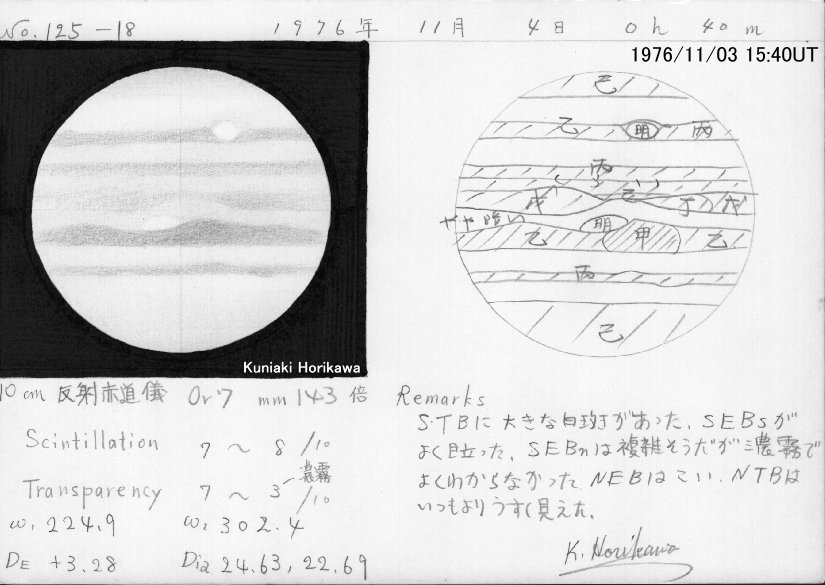 No. 125-18 1976年 11月 4日 0h 40m
1976/11/03 15:40UT
己
乙 明 丙
丙
戊 己 丁 戊
やや暗い 明
乙 甲 乙
丙
己
Kuniaki Horikawa
10cm 反射赤道儀 Or7 mm 143 倍
Scintillation 7 ~ 8 /10
濃霧
Transparency 7 ~ 3 /10
ω₁ 224.9 ω₂ 302.4
DE +3.28 Dia 24.63, 22.69
Remarks
S.TBに大きな白斑があった. SEBsが
よく目立った. SEBnは複雑そうだが濃霧で
よくわからなかった NEBはこい. NTBは
いつもよりうすく見えた.
K. Horikawa